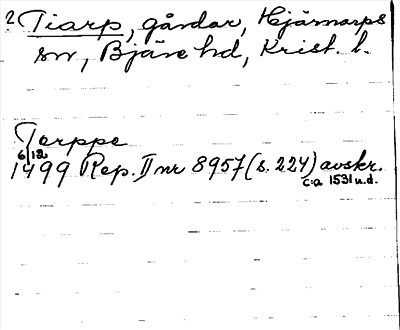 ? Tiarp, gårdar, Hjärnarps
sn, Bjäre hd, Krist. l.
Torppe
6/12
1499 Rep. II nr 8957 (s. 224) avskr.
c:a 1531 u.d.